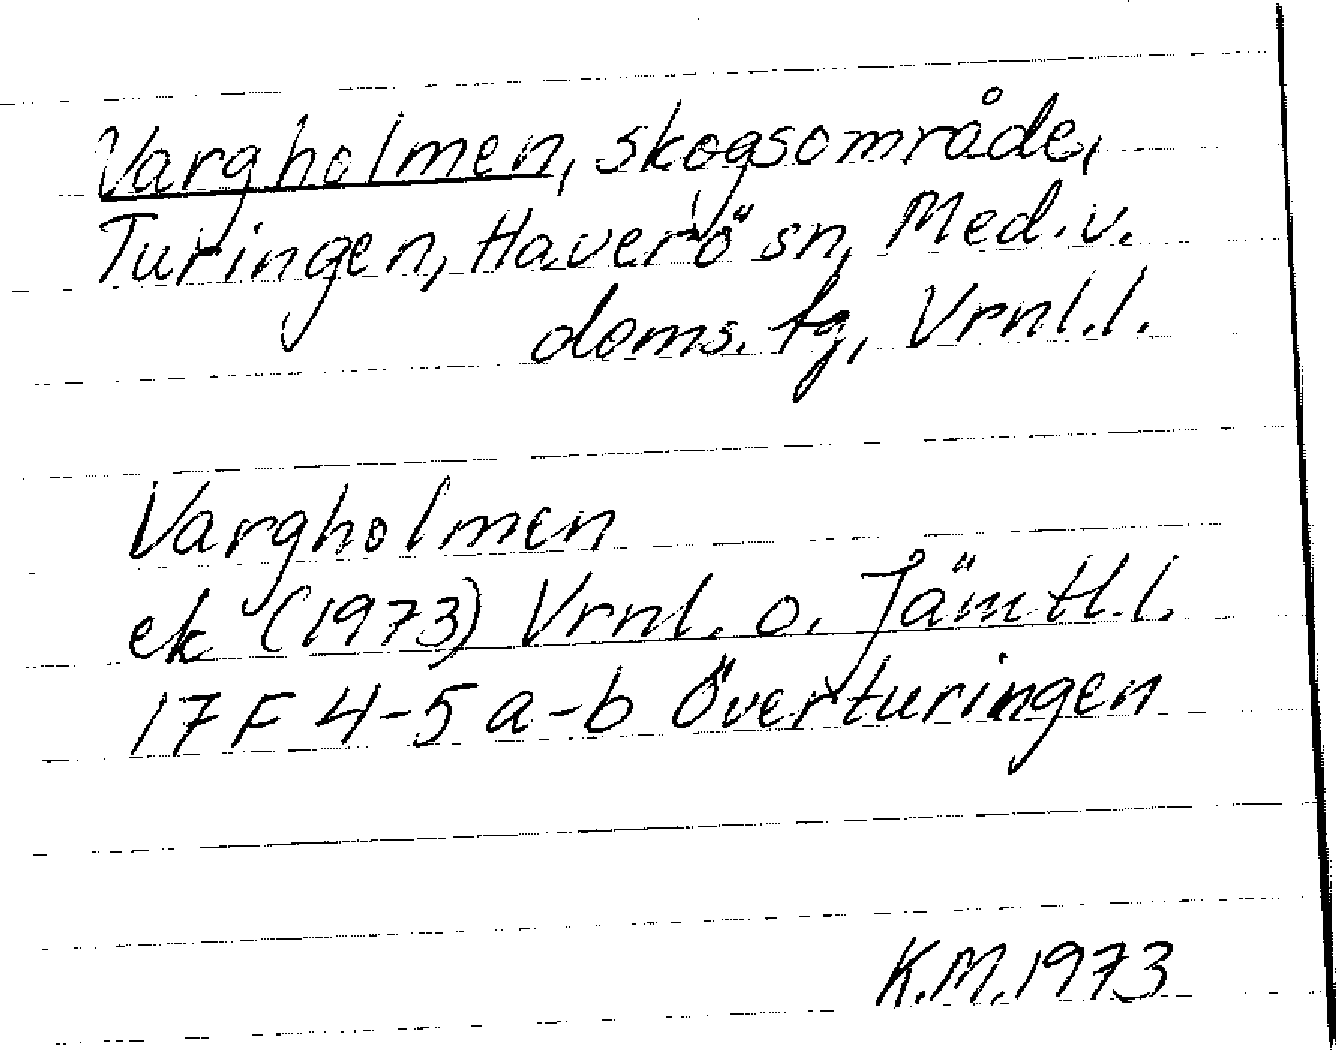 Vargholmen, skogsområde,
Turingen, Haverö sn, Med. v.
doms. tg, Vrnl.l.
Vargholmen
ek (1973) Vrnl. o. Jämtl.l.
17F 4-5 a-b Överturingen
K.M.1973